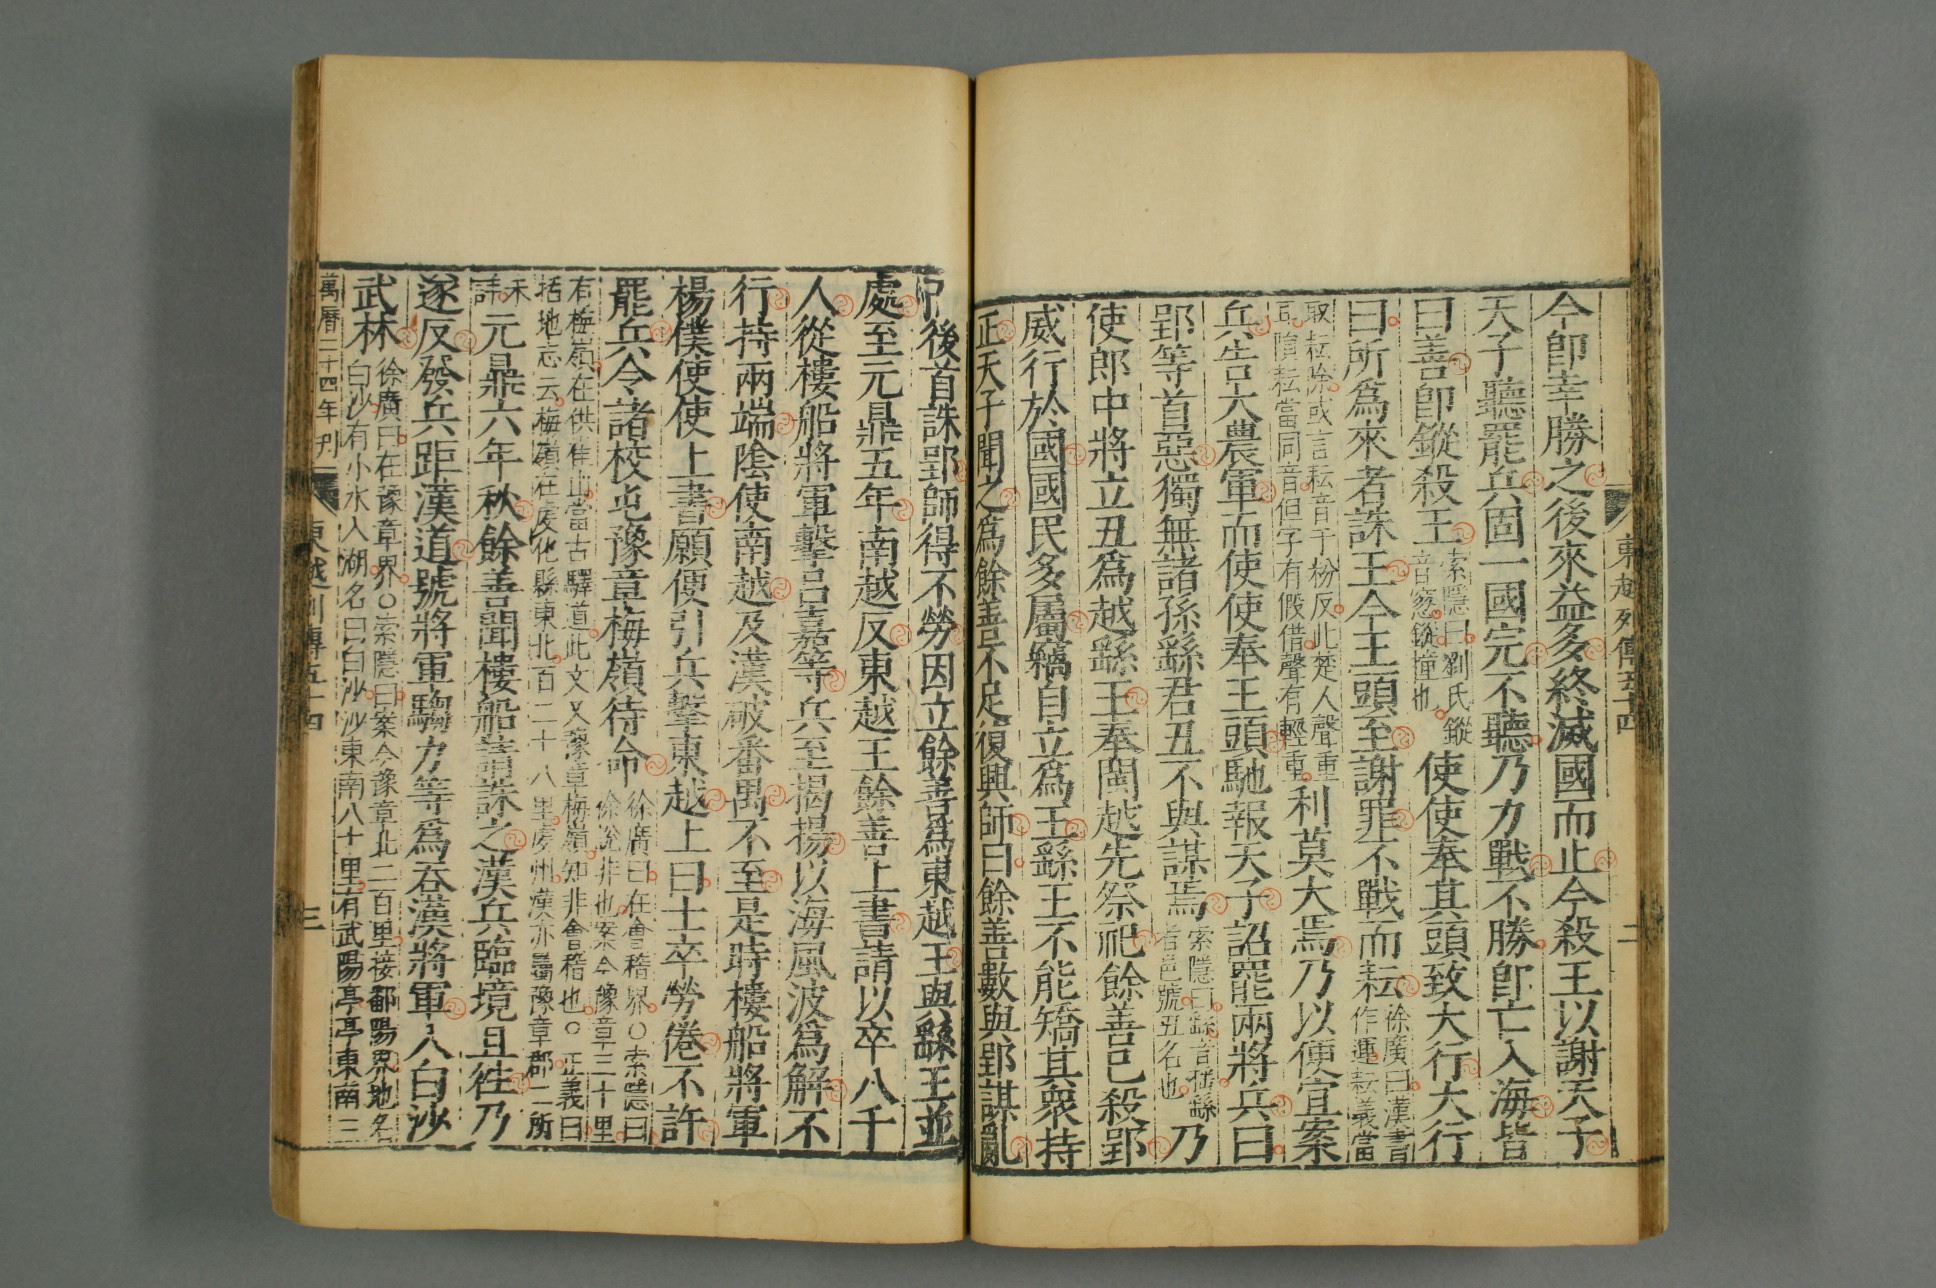 今卽幸勝之後來益多終滅國而止今殺王以謝天子
天子聽罷兵固一國完不聽乃力戰不勝卽亡入海皆
曰善卽鏦殺王索隱曰劉氏鏦
音窓鏦撞也使使奉其頭致大行大行
曰所爲來者誅王今王頭至謝罪不戰而耘徐廣曰漢書
作運耘義當
取耘除或言耘音于粉反此楚人聲重
耳隕耘當同音但字有假借聲有輕重利莫大焉乃以便宜案
兵告大農軍而使使奉王頭馳報天子詔罷兩將兵曰
郢等首惡獨無諸孫繇君丑不與謀焉索隱曰繇音搖繇
者邑號丑名也乃
使郎中將立丑爲越繇王奉閩越先祭祀餘善已殺郢
威行於國國民多屬竊自立爲王繇王不能矯其衆持
正天子聞之爲餘善不足復興師曰餘善數與郢謀亂
東越列傳五十四
二
而後首誅郢師得不勞因立餘善爲東越王與繇王並
處至元鼎五年南越反東越王餘善上書請以卒八千
人從樓船將軍擊呂嘉等兵至揭揚以海風波爲解不
行持兩端陰使南越及漢破番禺不至是時樓船將軍
楊僕使使上書願便引兵擊東越上曰士卒勞倦不許
罷兵令諸校屯豫章梅嶺待命徐廣曰在會稽界○索隱曰
徐說非也案今豫章三十里
有梅嶺在洪崖山當古驛道此文又豫章梅嶺知非會稽也○正義曰
括地志云梅嶺在虔化縣東北百二十八里虔州漢亦屬豫章郡二所
未
詳元鼎六年秋餘善聞樓船請誅之漢兵臨境且往乃
遂反發兵距漢道號將軍騶力等爲吞漢將軍入白沙
武林徐廣曰在豫章界○索隱曰案今豫章北二百里接鄱陽界地名
白沙有小水入湖名曰白沙沙東南八十里有武陽亭亭東南三
萬曆二十四年刊
東越列傳五十四
三